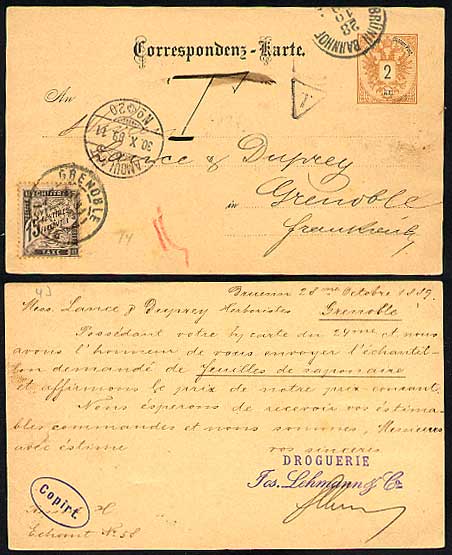 Correspondenz-Karte.
BRÜNN BAHNHOF
28
10
2
KR.
An
T
T
AMBULANT
No 20
30.X.89.11
Lance & Duprey
GRENOBLE
in Grenoble
Frankreich
15
CENTIMES
À PERCEVOIR
TAXE
14
15
Bruenn 28 me Octobre 1889.
Mess. Lance & Duprey Herboristes Grenoble
Possédant votre h/ carte du 24me et nous
avons l'honneur de vous envoyer l'échantil-
lon demandé de feuilles de saponaire
et affirmons le prix de notre prix-courant.
Nous ésperons de recevoir vos éstima-
bles commandes et nous sommes, Messieurs
avec éstime
vos sinceres
DROGUERIE
Jos. Lehmann & Co
Copirt.
Echant No 58